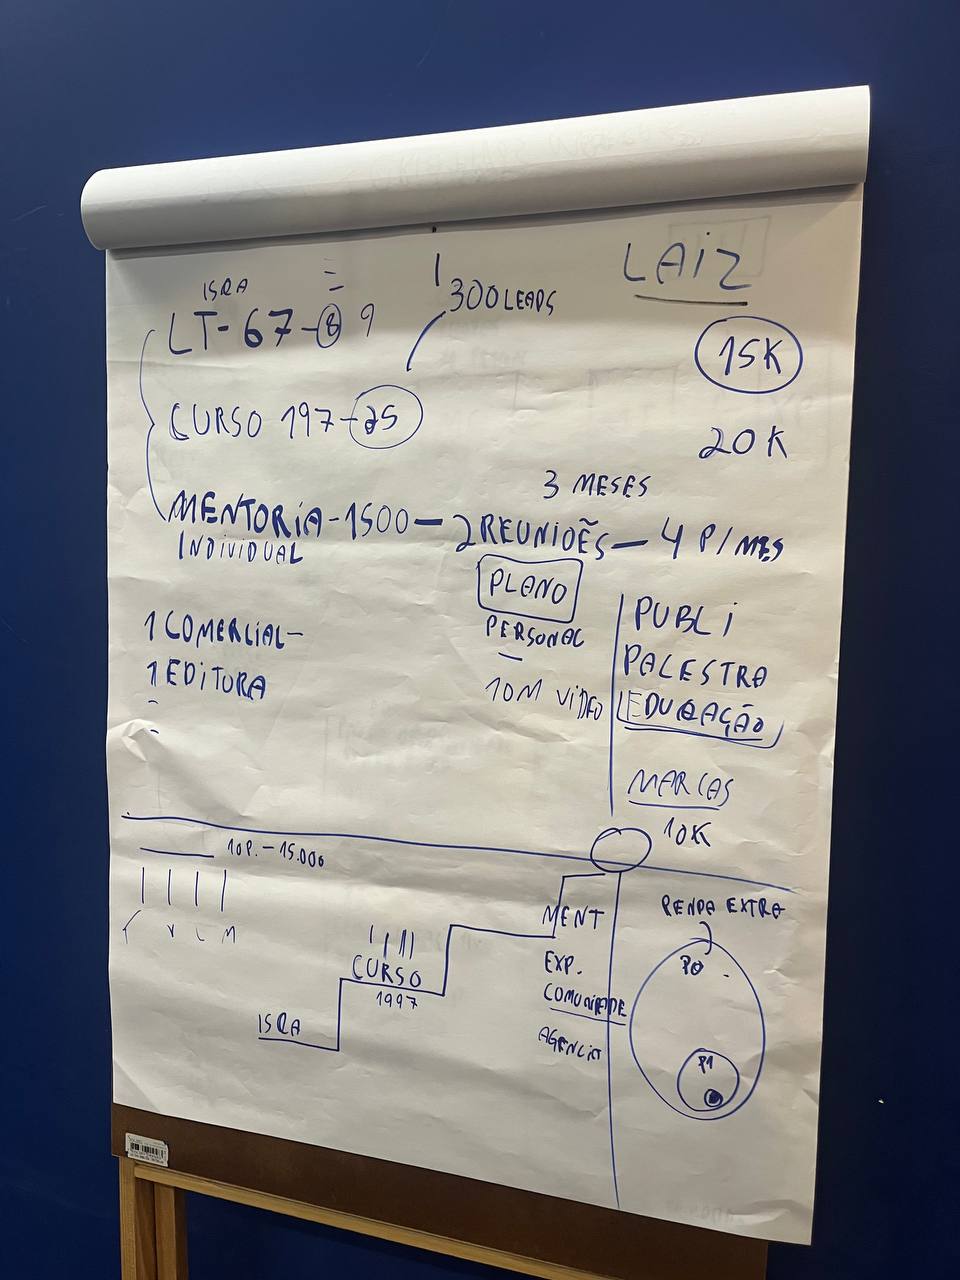 LAIZ
ISRA
300 LEADS
LT-67-8 9
15K
CURSO 197-25
20K
3 MESES
MENTORIA-1500-2 REUNIÕES-4 P/ MES
INDIVIDUAL
PLANO
PERSONAL
10M VIDEO
PUBLI
PALESTRA
EDUCAÇÃO
MARCAS
10K
1 COMERCIAL-
1 EDITORA
10P.-15.000
CURSO
1997
ISRA
MENT
EXP.
COMUNIDADE
AGENCIA
RENDA EXTRA
P0
P1